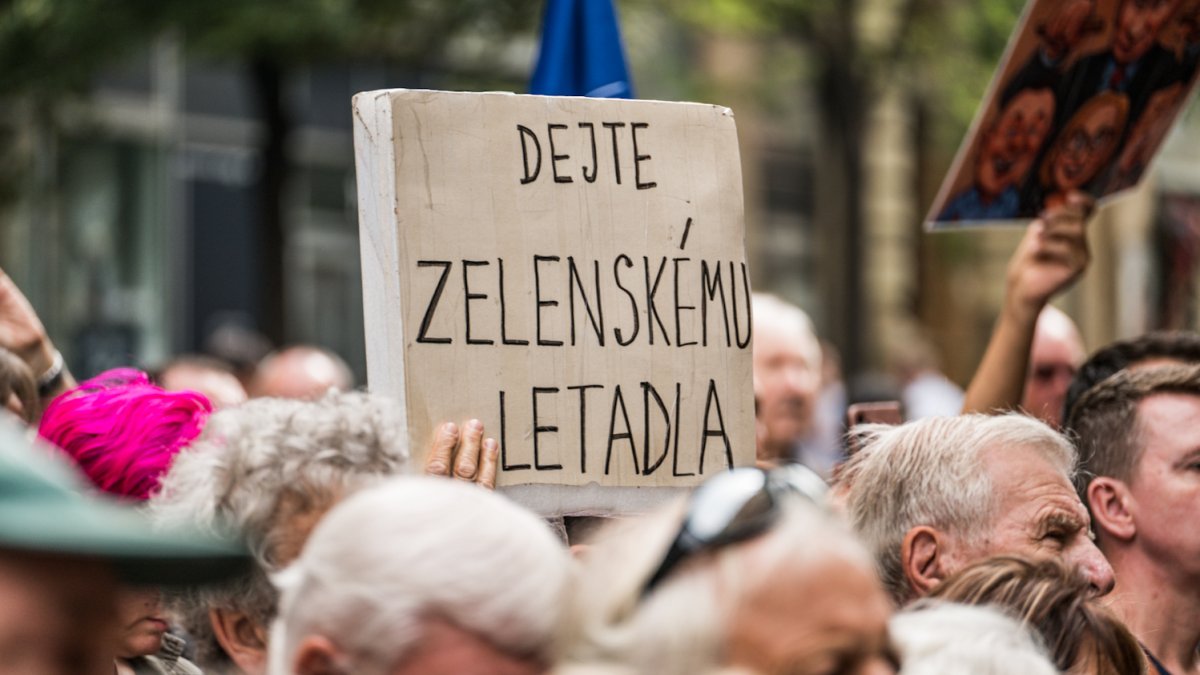 DEJTE
ZELENSKÉMU
LETADLA